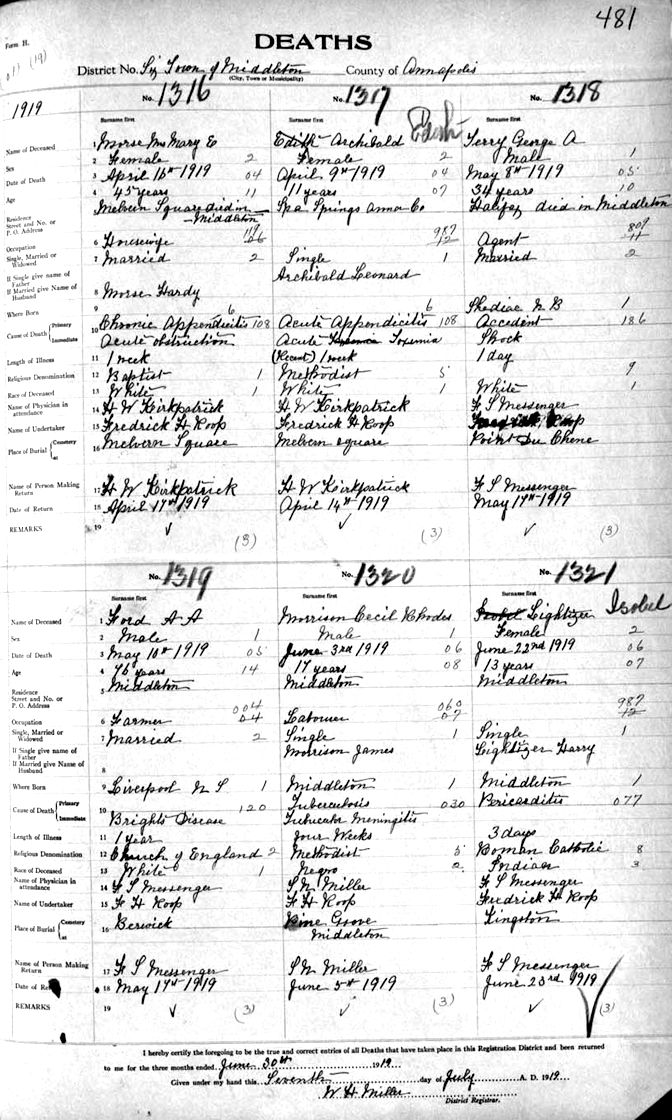 481
Form H.
DEATHS
District No. Six Town of Middleton County of Annapolis
(City, Town or Municipality)
1919
No. 1316 No. 1317 No. 1318
Surname first Surname first Surname first
Name of Deceased 1 Morse Mrs Mary E Edith Archibald Edith Terry George A
Sex 2 Female 2 Female 2 Male 1
Date of Death 3 April 16th 1919 04 April 9th 1919 04 May 8th 1919 05
Age 4 45 years 11 11 years 07 34 years 10
Residence Street and No. or P. O. Address 5 Melvern Square died in Middleton Spa Springs Anna Co Halifax died in Middleton
Occupation 6 Housewife 987 12 Agent 809 11
Single, Married or Widowed 7 Married 2 Single 1 Married 2
If Single give name of Father If Married give Name of Husband 8 Morse Hardy Archibald Leonard
Where Born 9 6 6 Shediac N B 1
Cause of Death Primary 10 Chronic Appendicitis 108 Acute Appendicitis 108 Accident 186
Immediate Acute obstruction Acute Toxemia Shock
Length of Illness 11 1 week (Recent) 1 week 1 day
Religious Denomination 12 Baptist 1 Methodist 5 9
Race of Deceased 13 White 1 White 1 White 1
Name of Physician in attendance 14 H W Kirkpatrick H W Kirkpatrick F S Messenger
Name of Undertaker 15 Fredrick H Roop Fredrick H Roop Roop
Place of Burial Cemetery at 16 Melvern Square Melvern Square Point Du Chene
Name of Person Making Return 17 H W Kirkpatrick H W Kirkpatrick F S Messenger
Date of Return 18 April 17th 1919 April 14th 1919 May 17th 1919
REMARKS 19 ✓ (3) ✓ (3) ✓ (3)
No. 1319 No. 1320 No. 1321
Surname first Surname first Surname first
Name of Deceased 1 Ford A A Morrison Cecil Rhodes Isobel Lightizer Isobel
Sex 2 Male 1 Male 1 Female 2
Date of Death 3 May 10th 1919 05 June 3rd 1919 06 June 22nd 1919 06
Age 4 76 years 14 17 years 08 13 years 07
Residence Street and No. or P. O. Address 5 Middleton Middleton Middleton
Occupation 6 Farmer 004 04 Labourer 060 07 987 12
Single, Married or Widowed 7 Married 2 Single 1 Single 1
If Single give name of Father If Married give Name of Husband 8 Morrison James Lightizer Harry
Where Born 9 Liverpool N S 1 Middleton 1 Middleton 1
Cause of Death Primary 10 120 Tuberculosis 030 Pericarditis 077
Immediate Brights Disease Tubucular Meningitis
Length of Illness 11 1 year Four Weeks 3 days
Religious Denomination 12 Church of England 2 Methodist 5 Roman Catholic 8
Race of Deceased 13 White 1 Negro 2 Indian 3
Name of Physician in attendance 14 F S Messenger S N Miller F S Messenger
Name of Undertaker 15 F H Roop F H Roop Fredrick H Roop
Place of Burial Cemetery at 16 Berwick Pine Grove Middleton Kingston
Name of Person Making Return 17 F S Messenger S N Miller F S Messenger
Date of 18 May 17th 1919 June 5th 1919 June 23rd 1919
REMARKS 19 ✓ (3) ✓ (3) ✓ (3)
I hereby certify the foregoing to be the true and correct entries of all Deaths that have taken place in this Registration District and been returned
to me for the three months ended June 30th 1919
Given under my hand this Seventh day of July A. D. 1919
W H Miller
District Registrar.